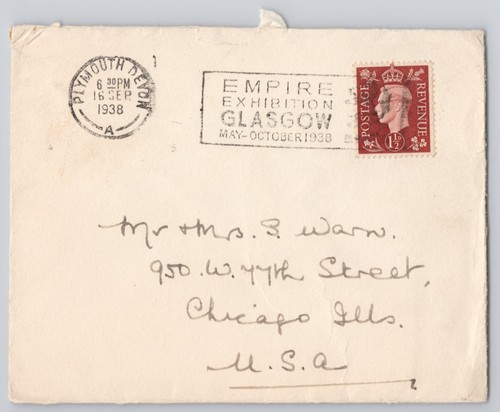 PLYMOUTH DEVON
6 30 PM
16 SEP
1938
A
EMPIRE
EXHIBITION
GLASGOW
MAY-OCTOBER 1938
POSTAGE
REVENUE
1½D
Mr & Mrs. S. Warn.
950. W. 77th Street,
Chicago Ills.
U.S.A